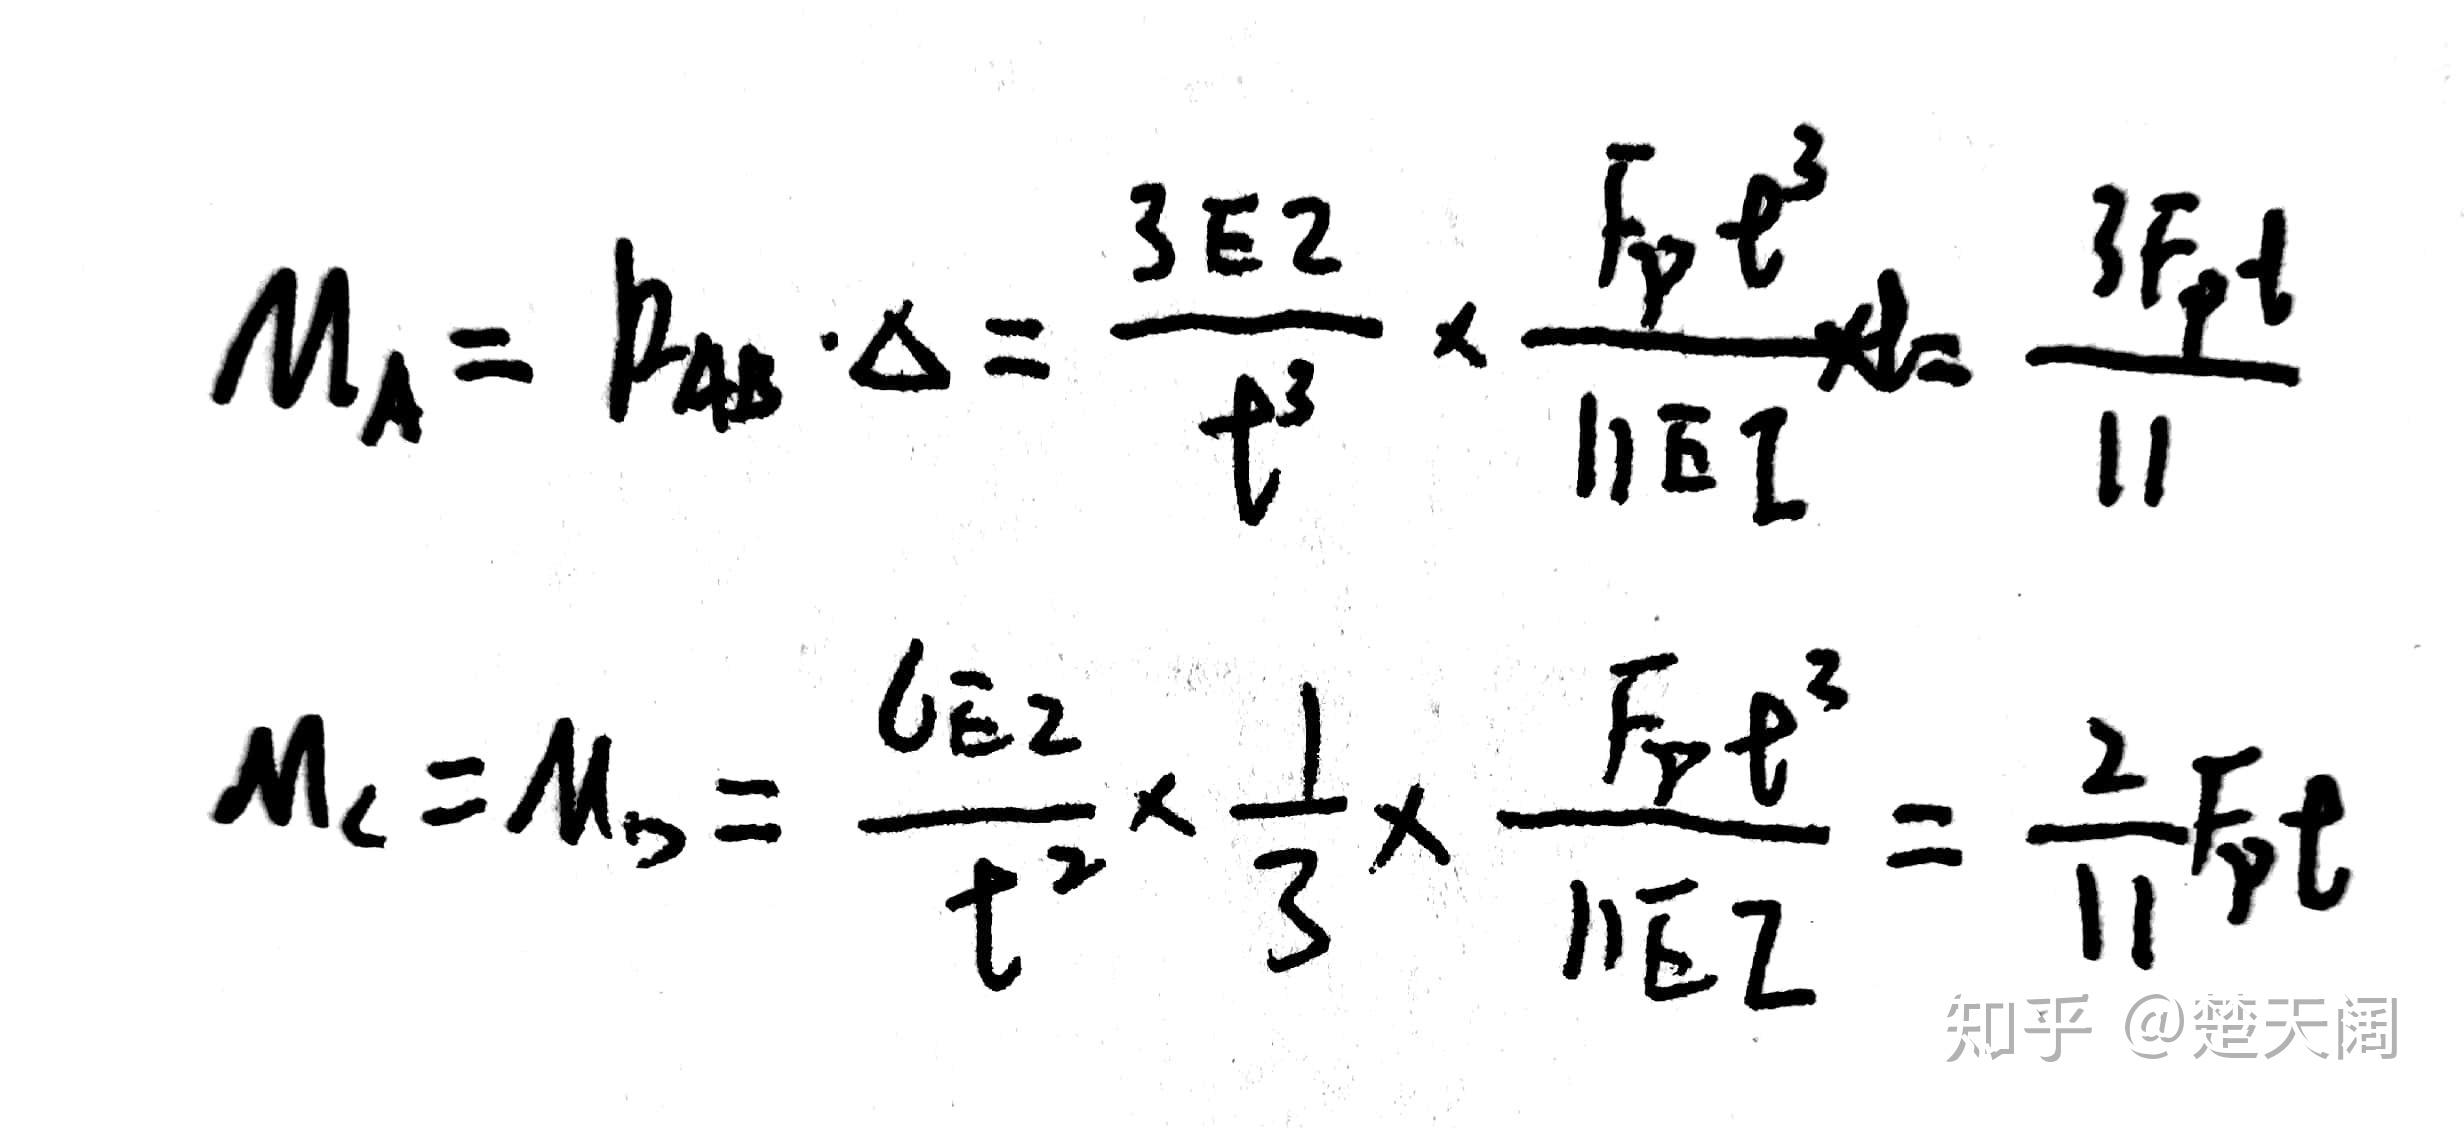 M_A = k_AB · Δ = 3EI/l³ × F_p l³/11EI × l = 3F_p l/11
M_C = M_D = 6EI/l² × 1/3 × F_p l³/11EI = 2/11 F_p l
知乎 @楚天阔